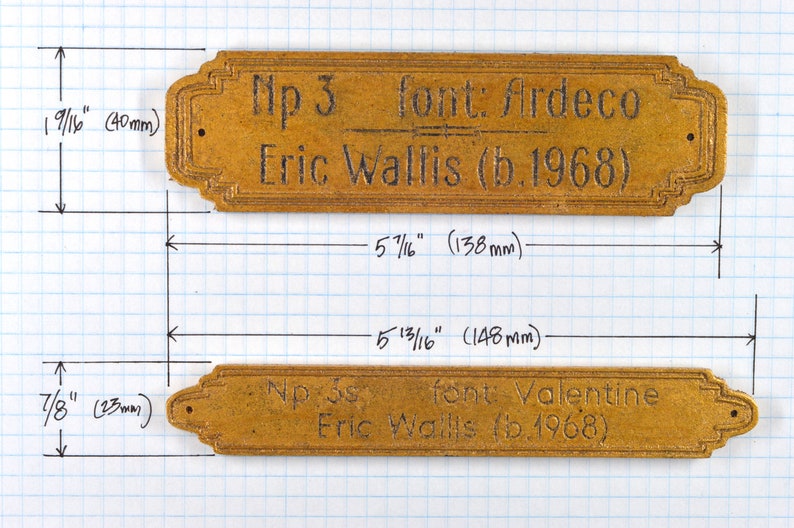 Np 3 font: Ardeco
Eric Wallis (b.1968)
1 9/16" (40mm)
5 7/16" (138mm)
5 13/16" (148mm)
Np 3s font: Valentine
Eric Wallis (b.1968)
7/8" (23mm)